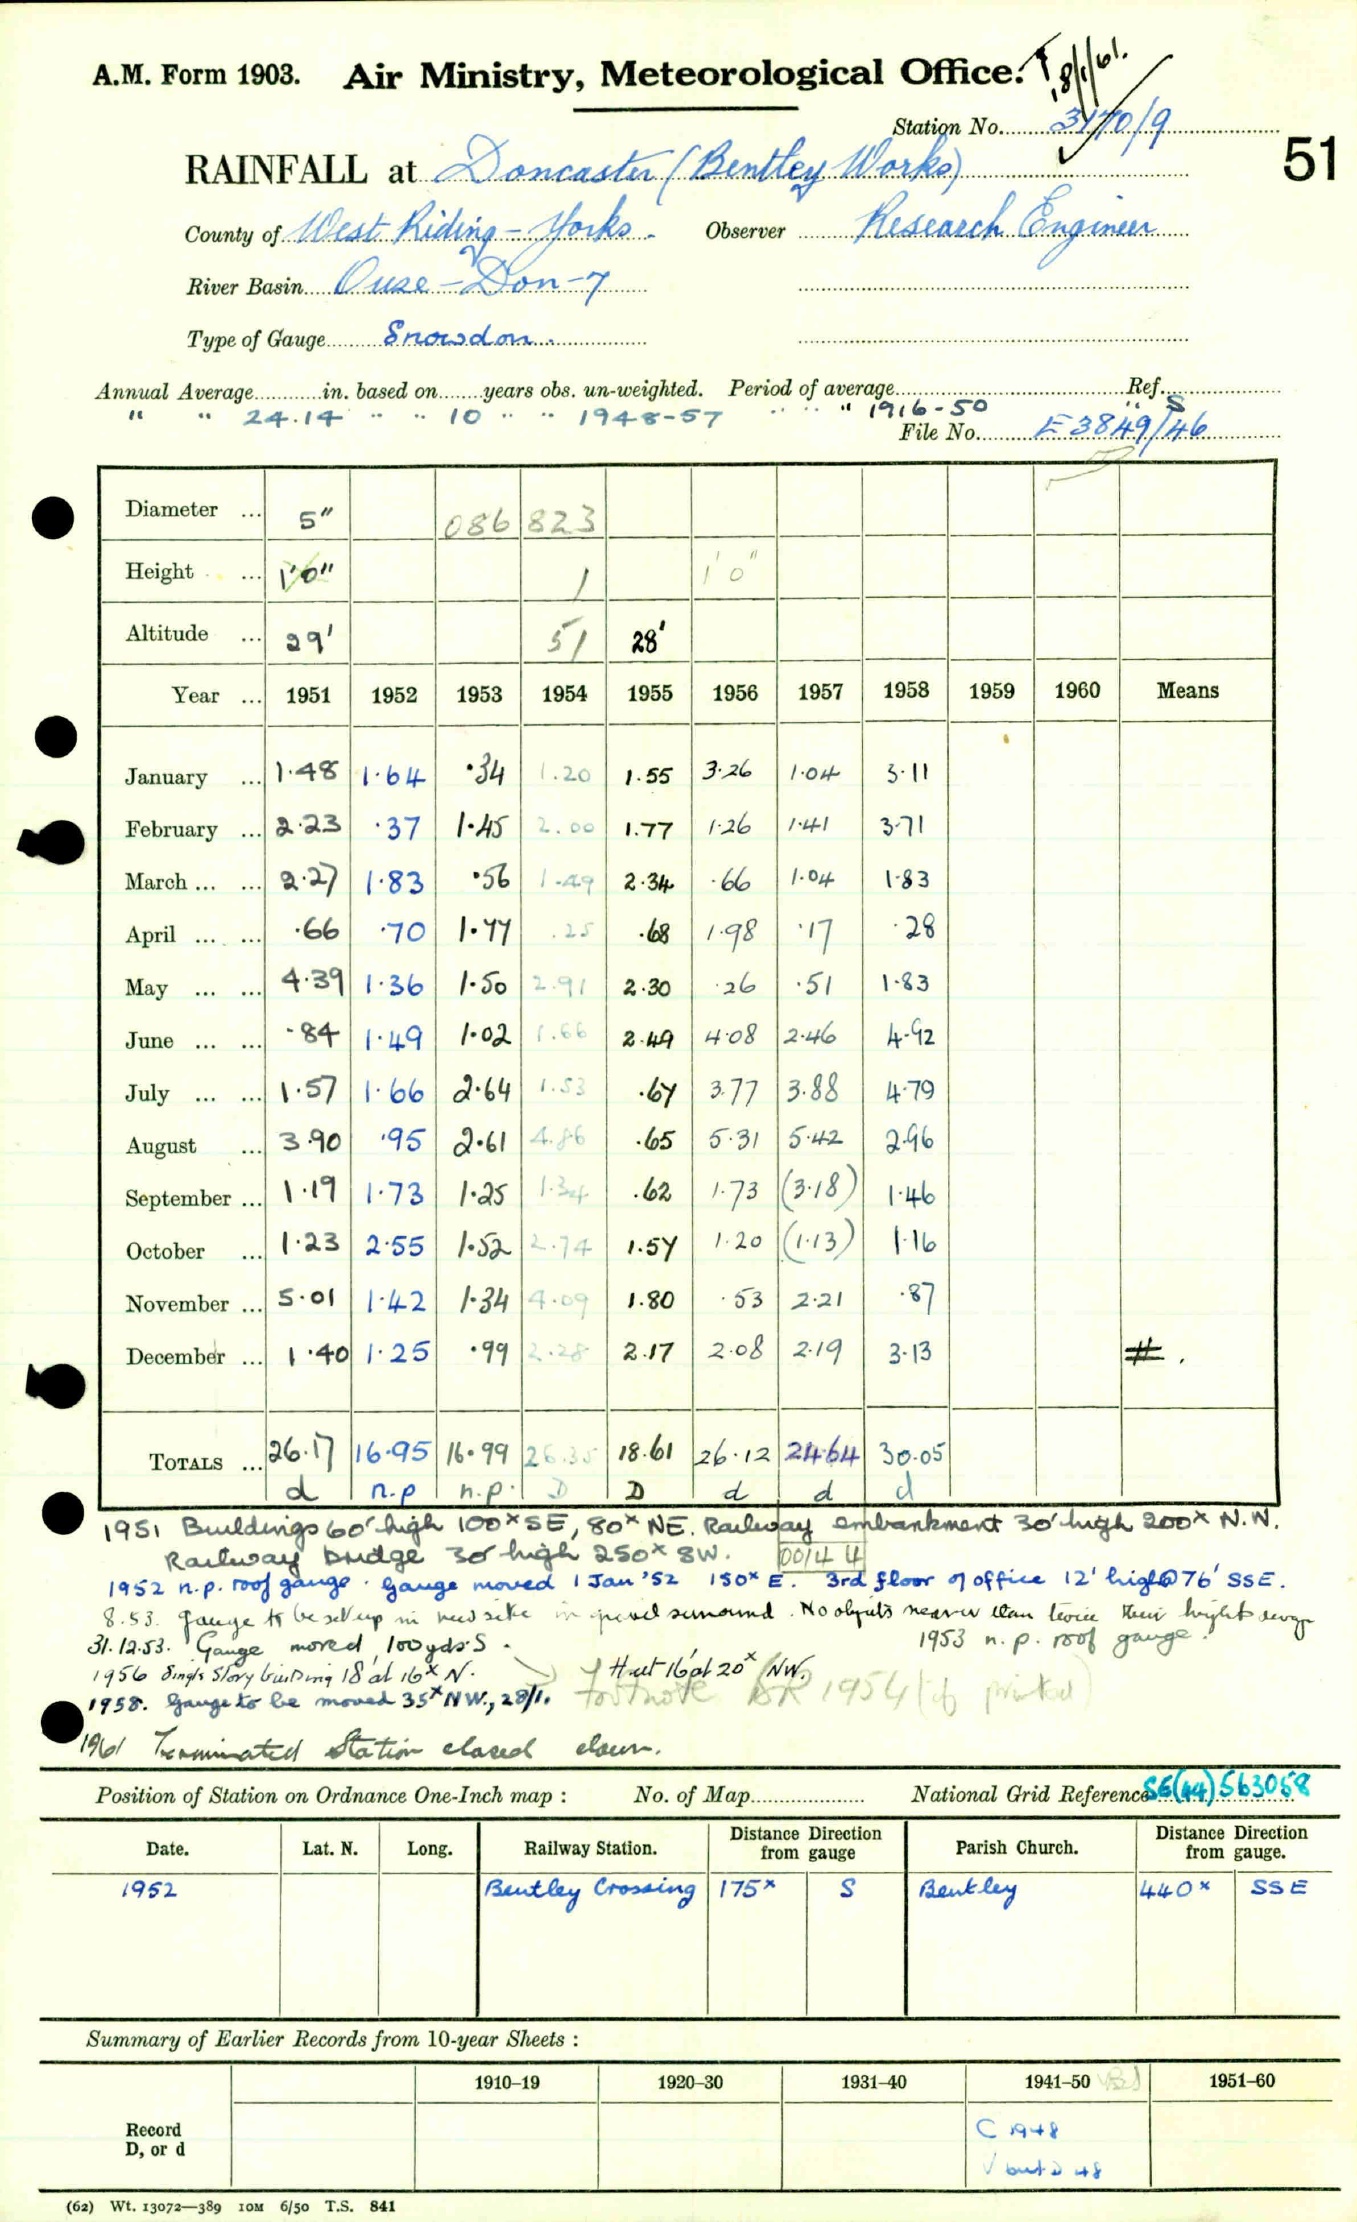 A.M. Form 1903. Air Ministry, Meteorological Office. 18/1/61.
Station No. 3170/9
51
RAINFALL at Doncaster (Bentley Works)
County of West Riding – Yorks. Observer Research Engineer
River Basin Ouse – Don – 7
Type of Gauge Snowdon.
Annual Average in. based on years obs. un-weighted. Period of average Ref.
" " 24.14 " " 10 " " 1948-57 " " " 1916-50 " S
File No. E3849/46
Diameter ... 5" 086 823
Height ... 1'0" 1 1'0"
Altitude ... 29' 51 28'
Year ... 1951 1952 1953 1954 1955 1956 1957 1958 1959 1960 Means
January ... 1.48 1.64 .34 1.20 1.55 3.26 1.04 3.11
February ... 2.23 .37 1.45 2.00 1.77 1.26 1.41 3.71
March ... ... 2.27 1.83 .56 1.49 2.34 .66 1.04 1.83
April ... ... .66 .70 1.77 .25 .68 1.98 .17 .28
May ... ... 4.39 1.36 1.50 2.91 2.30 .26 .51 1.83
June ... ... .84 1.49 1.02 1.66 2.49 4.08 2.46 4.92
July ... ... 1.57 1.66 2.64 1.53 .67 3.77 3.88 4.79
August ... 3.90 .95 2.61 4.86 .65 5.31 5.42 2.96
September ... 1.19 1.73 1.25 1.34 .62 1.73 (3.18) 1.46
October ... 1.23 2.55 1.52 2.74 1.57 1.20 (1.13) 1.16
November ... 5.01 1.42 1.34 4.09 1.80 .53 2.21 .87
December ... 1.40 1.25 .99 2.28 2.17 2.08 2.19 3.13 # .
TOTALS ... 26.17 16.95 16.99 26.35 18.61 26.12 24.64 30.05
d n.p n.p. D D d d d
1951 Buildings 60' high 100ˣ SE, 80ˣ NE. Railway embankment 30' high 200ˣ N.W.
Railway bridge 30' high 250ˣ SW. 0014 4
1952 n.p. roof gauge. Gauge moved 1 Jan '52 150ˣ E. 3rd floor of office 12' high @ 76' SSE.
8.53. Gauge to be set up in new site in gravel surround. No objects nearer than twice their height away
31.12.53. Gauge moved 100 yds S. 1953 n.p. roof gauge.
1956 Single story building 18' at 16ˣ N. Hut 16' at 20ˣ NW.
1958. Gauge to be moved 35ˣ NW., 28/1. Footnote BR 1954 (if printed)
1961 Terminated Station closed down.
Position of Station on Ordnance One-Inch map : No. of Map National Grid Reference SE(44) 563058
Date. Lat. N. Long. Railway Station. Distance Direction from gauge Parish Church. Distance Direction from gauge.
1952 Bentley Crossing 175ˣ S Bentley 440ˣ SSE
Summary of Earlier Records from 10-year Sheets :
1910–19 1920–30 1931–40 1941–50 1951–60
Record
D, or d
C 1948
(62) Wt. 13072—389 10M 6/50 T.S. 841